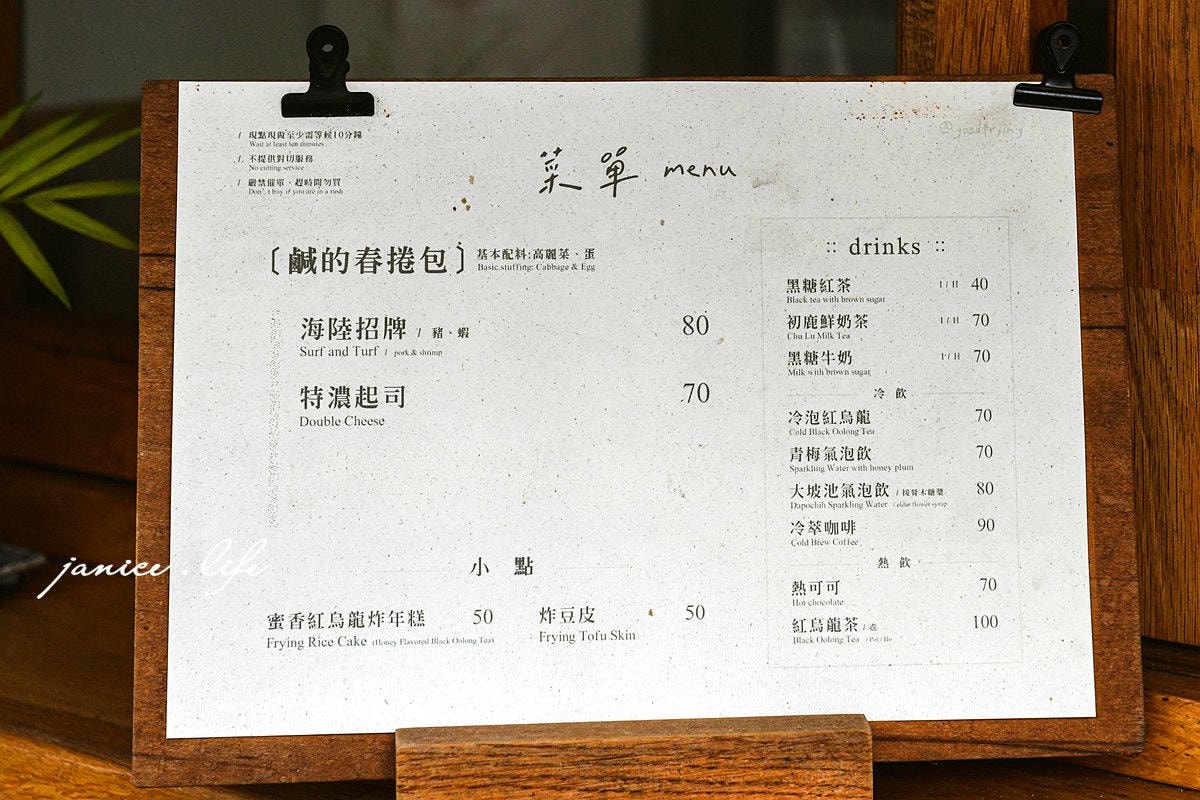 / 現點現做至少需等候10分鐘
Wait at least ten minutes
/. 不提供對切服務
No cutting service
/ 嚴禁催單、趕時間勿買
Don't buy if you are in a rush
菜單 menu
@goodfrying
〔鹹的春捲包〕基本配料:高麗菜、蛋
Basic stuffing: Cabbage & Egg
海陸招牌 / 豬、蝦 80
Surf and Turf / pork & shrimp
特濃起司 70
Double Cheese
小 點
蜜香紅烏龍炸年糕 50
Frying Rice Cake (Honey Flavored Black Oolong Tea)
炸豆皮 50
Frying Tofu Skin
:: drinks ::
黑糖紅茶 I / H 40
Black tea with brown sugar
初鹿鮮奶茶 I / H 70
Chu Lu Milk Tea
黑糖牛奶 I / H 70
Milk with brown sugar
冷 飲
冷泡紅烏龍 70
Cold Black Oolong Tea
青梅氣泡飲 70
Sparkling Water with honey plum
大坡池氣泡飲 / 接骨木糖漿 80
Dapochih Sparkling Water / elder flower syrup
冷萃咖啡 90
Cold Brew Coffee
熱 飲
熱可可 70
Hot chocolate
紅烏龍茶 / 壺 100
Black Oolong Tea / Pot / Ho
janice.life